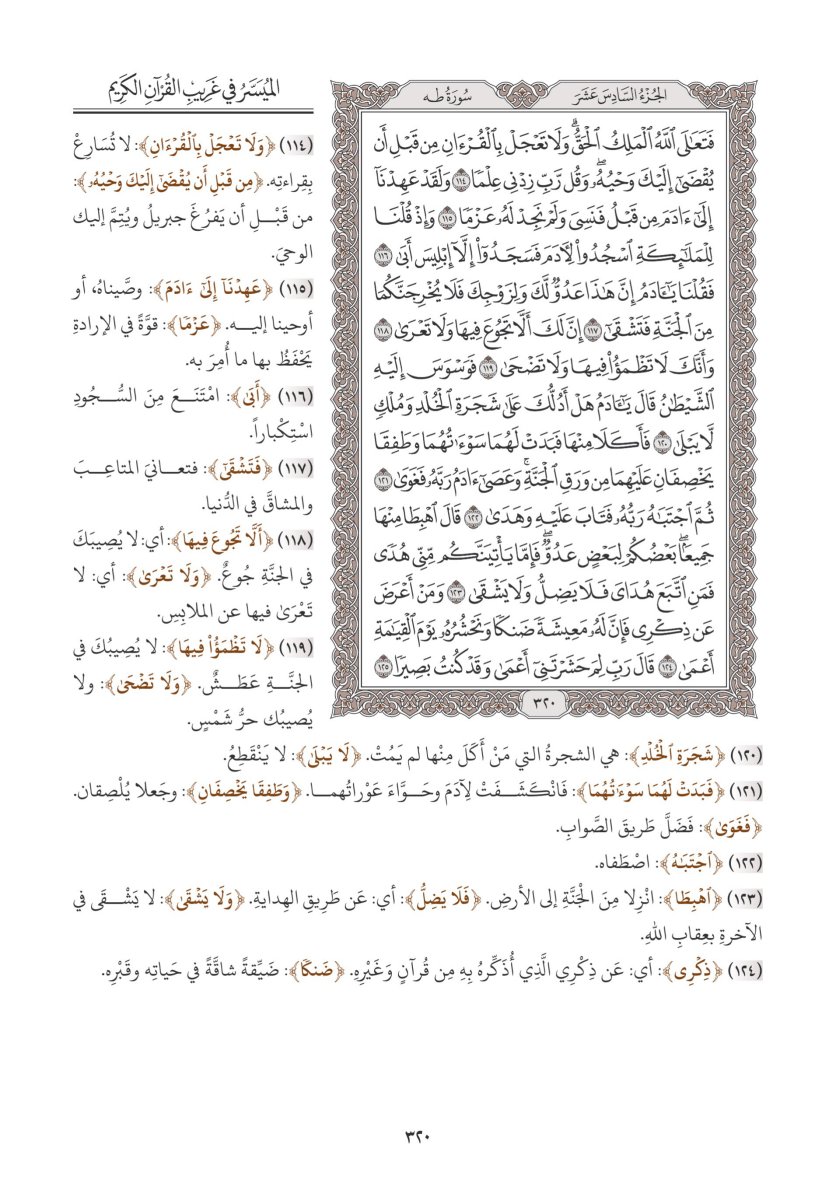 الميُسَّرُ في غَرِيبِ القُرْآنِ الكَرِيم
الجُزْءُ السَّادِسَ عَشَرَ
سُورَةُ طه
فَتَعَٰلَى ٱللَّهُ ٱلْمَلِكُ ٱلْحَقُّۗ وَلَا تَعْجَلْ بِٱلْقُرْءَانِ مِن قَبْلِ أَن
يُقْضَىٰٓ إِلَيْكَ وَحْيُهُۥۖ وَقُل رَّبِّ زِدْنِى عِلْمًا ١١٤ وَلَقَدْ عَهِدْنَآ
إِلَىٰٓ ءَادَمَ مِن قَبْلُ فَنَسِىَ وَلَمْ نَجِدْ لَهُۥ عَزْمًا ١١٥ وَإِذْ قُلْنَا
لِلْمَلَٰٓئِكَةِ ٱسْجُدُوا۟ لِءَادَمَ فَسَجَدُوٓا۟ إِلَّآ إِبْلِيسَ أَبَىٰ ١١٦
فَقُلْنَا يَٰٓـَٔادَمُ إِنَّ هَٰذَا عَدُوٌّ لَّكَ وَلِزَوْجِكَ فَلَا يُخْرِجَنَّكُمَا
مِنَ ٱلْجَنَّةِ فَتَشْقَىٰٓ ١١٧ إِنَّ لَكَ أَلَّا تَجُوعَ فِيهَا وَلَا تَعْرَىٰ ١١٨
وَأَنَّكَ لَا تَظْمَؤُا۟ فِيهَا وَلَا تَضْحَىٰ ١١٩ فَوَسْوَسَ إِلَيْهِ
ٱلشَّيْطَٰنُ قَالَ يَٰٓـَٔادَمُ هَلْ أَدُلُّكَ عَلَىٰ شَجَرَةِ ٱلْخُلْدِ وَمُلْكٍ
لَّا يَبْلَىٰ ١٢٠ فَأَكَلَا مِنْهَا فَبَدَتْ لَهُمَا سَوْءَٰتُهُمَا وَطَفِقَا
يَخْصِفَانِ عَلَيْهِمَا مِن وَرَقِ ٱلْجَنَّةِۚ وَعَصَىٰٓ ءَادَمُ رَبَّهُۥ فَغَوَىٰ ١٢١
ثُمَّ ٱجْتَبَٰهُ رَبُّهُۥ فَتَابَ عَلَيْهِ وَهَدَىٰ ١٢٢ قَالَ ٱهْبِطَا مِنْهَا
جَمِيعًۢاۖ بَعْضُكُمْ لِبَعْضٍ عَدُوٌّۖ فَإِمَّا يَأْتِيَنَّكُم مِّنِّى هُدًى
فَمَنِ ٱتَّبَعَ هُدَاىَ فَلَا يَضِلُّ وَلَا يَشْقَىٰ ١٢٣ وَمَنْ أَعْرَضَ
عَن ذِكْرِى فَإِنَّ لَهُۥ مَعِيشَةً ضَنكًا وَنَحْشُرُهُۥ يَوْمَ ٱلْقِيَٰمَةِ
أَعْمَىٰ ١٢٤ قَالَ رَبِّ لِمَ حَشَرْتَنِىٓ أَعْمَىٰ وَقَدْ كُنتُ بَصِيرًا ١٢٥
٣٢٠
(١١٤) ﴿وَلَا تَعْجَلْ بِٱلْقُرْءَانِ﴾: لا تُسَارِعْ
بِقِراءتِه. ﴿مِن قَبْلِ أَن يُقْضَىٰٓ إِلَيْكَ وَحْيُهُۥ﴾:
من قَبْلِ أن يَفرُغَ جبريلُ ويُتِمَّ إليك
الوحيَ.
(١١٥) ﴿عَهِدْنَآ إِلَىٰٓ ءَادَمَ﴾: وصَّيناهُ، أو
أوحينا إليه. ﴿عَزْمًا﴾: قوَّةً في الإرادةِ
يَحْفَظُ بها ما أُمِرَ به.
(١١٦) ﴿أَبَىٰ﴾: امْتَنَعَ مِنَ السُّجُودِ
اسْتِكْباراً.
(١١٧) ﴿فَتَشْقَىٰٓ﴾: فتعانيَ المتاعِبَ
والمشاقَّ في الدُّنيا.
(١١٨) ﴿أَلَّا تَجُوعَ فِيهَا﴾: أي: لا يُصِيبَكَ
في الجنَّةِ جُوعٌ. ﴿وَلَا تَعْرَىٰ﴾: أي: لا
تَعْرَىٰ فيها عن الملابِسِ.
(١١٩) ﴿لَا تَظْمَؤُا۟ فِيهَا﴾: لا يُصِيبُكَ في
الجنَّةِ عَطَشٌ. ﴿وَلَا تَضْحَىٰ﴾: ولا
يُصِيبُك حرُّ شَمْسٍ.
(١٢٠) ﴿شَجَرَةِ ٱلْخُلْدِ﴾: هي الشجرةُ التي مَنْ أَكَلَ مِنْها لم يَمُتْ. ﴿لَا يَبْلَىٰ﴾: لا يَنْقَطِعُ.
(١٢١) ﴿فَبَدَتْ لَهُمَا سَوْءَٰتُهُمَا﴾: فَانْكَشَفَتْ لِآدَمَ وحَوَّاءَ عَوْراتُهما. ﴿وَطَفِقَا يَخْصِفَانِ﴾: وجَعلا يُلْصِقان.
﴿فَغَوَىٰ﴾: فَضَلَّ طَريقَ الصَّوابِ.
(١٢٢) ﴿ٱجْتَبَٰهُ﴾: اصْطَفاه.
(١٢٣) ﴿ٱهْبِطَا﴾: انْزِلا مِنَ الْجَنَّةِ إلى الأرضِ. ﴿فَلَا يَضِلُّ﴾: أي: عَن طَرِيقِ الهِدايةِ. ﴿وَلَا يَشْقَىٰ﴾: لا يَشْقَى في
الآخرةِ بعِقابِ اللهِ.
(١٢٤) ﴿ذِكْرِى﴾: أي: عَن ذِكْرِي الَّذِي أُذَكِّرهُ بِهِ مِن قُرآنٍ وَغَيْرِهِ. ﴿ضَنكًا﴾: ضَيِّقةً شاقَّةً في حَياتِه وقَبْرِه.
٣٢٠